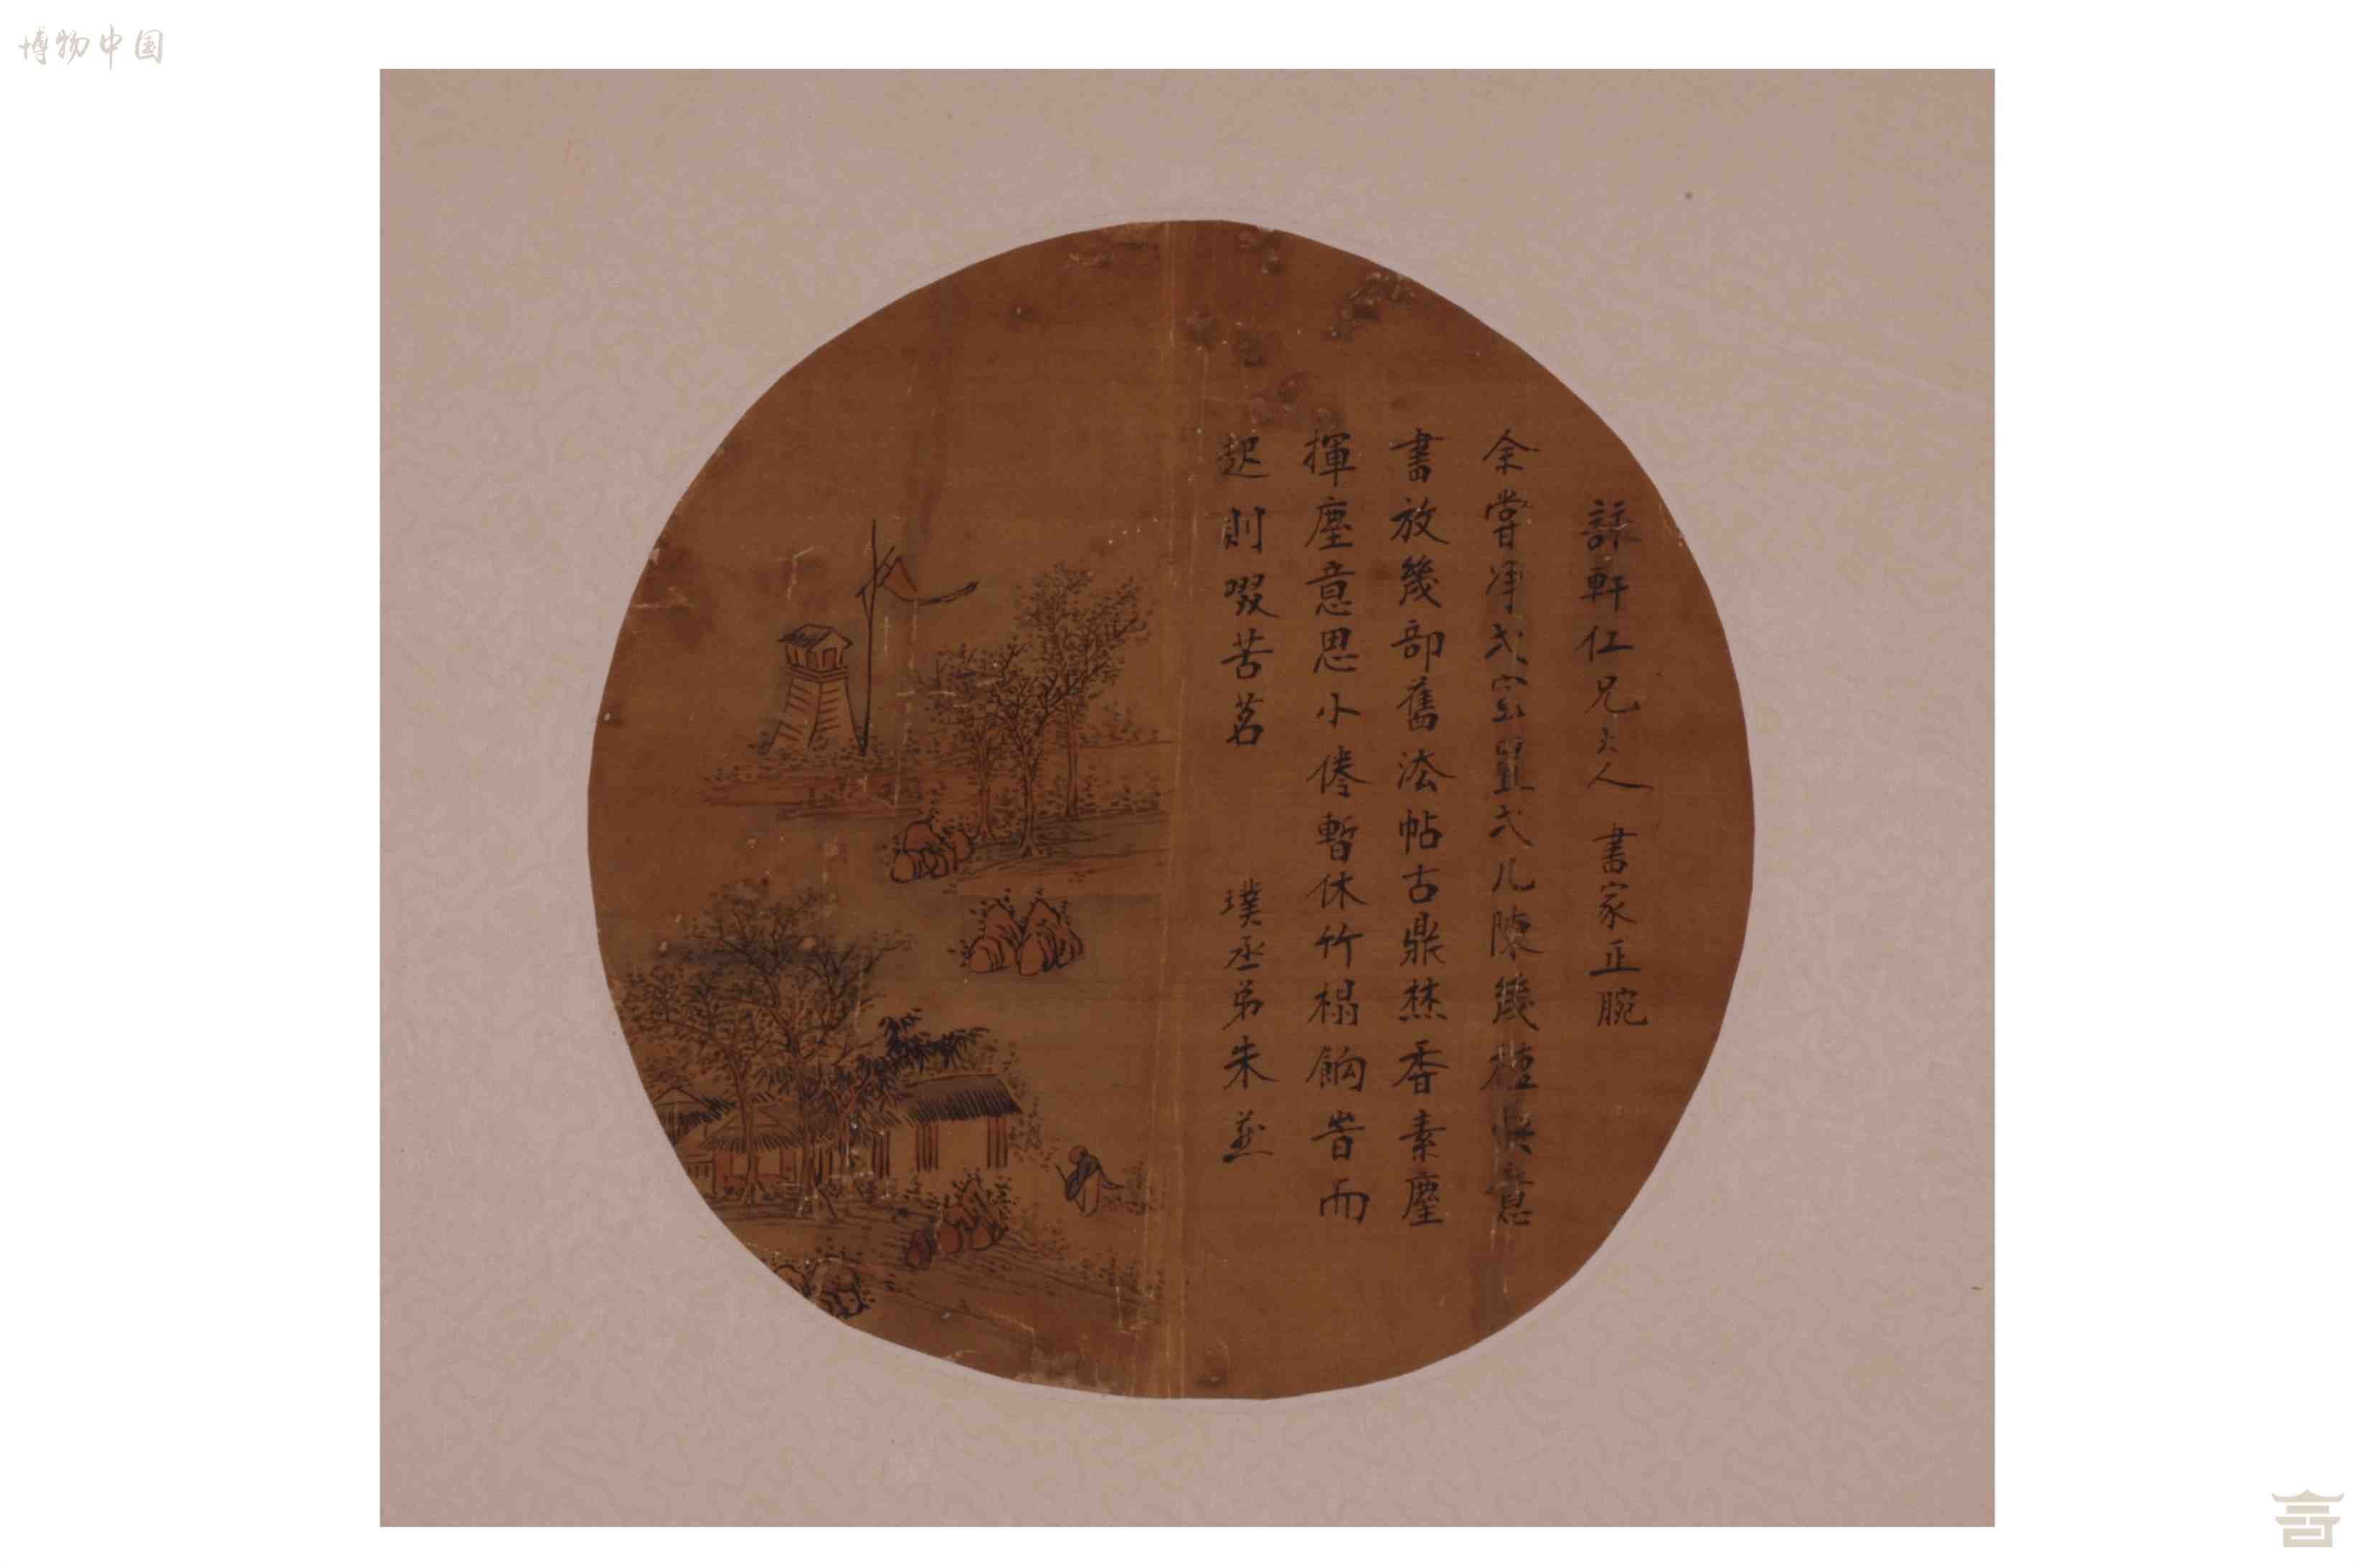 博物中国
軒仁兄大人書家正腕
余嘗淨弌室置弌几陳幾種快意
書放幾部舊法帖古鼎焚香素麈
揮麈意思小倦暫休竹榻餉昔而
起則啜苦茗
璞丞弟朱